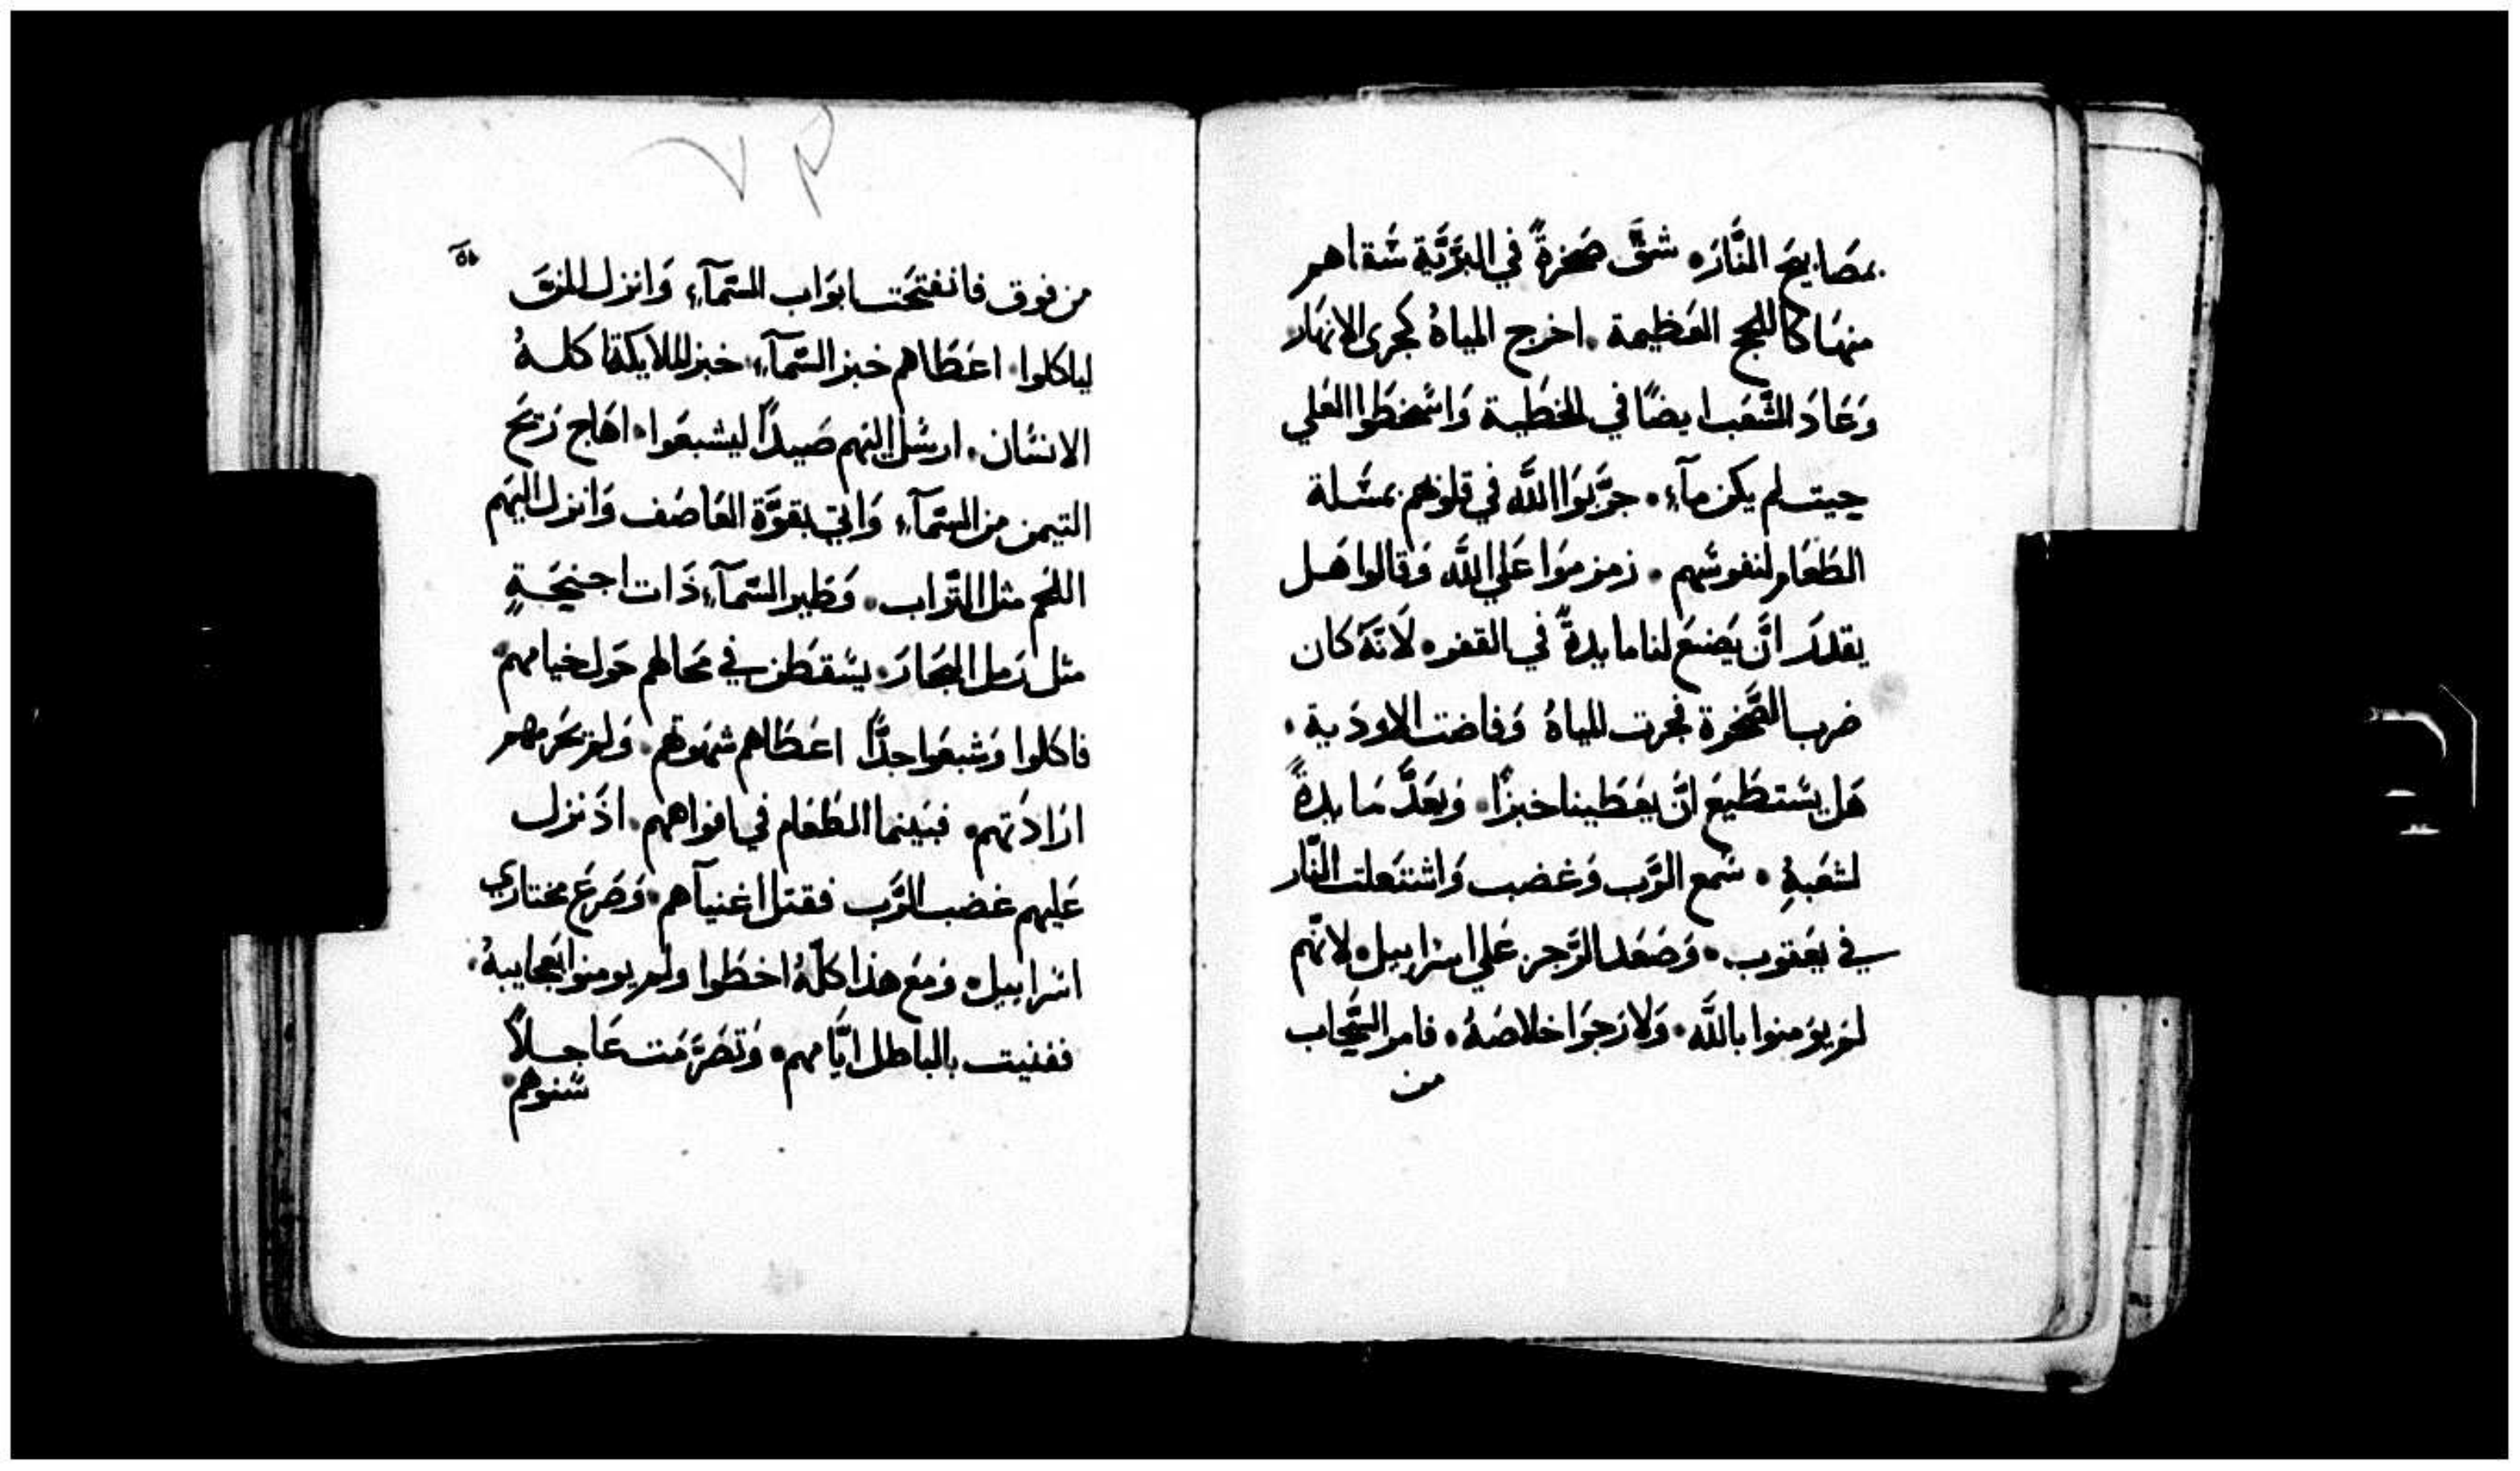 بمصابيح النَّار • شقَّ صخرةً في البرَّيَّة سقاهم
منها كاللجج العظيمة • اخرج المياهُ كمجرى الانهار
وَعَادَ الشَّعَب ايضًا في الخطية وَاسْخطوا العَلي
حيت لم يكن مآء • جرَّبوَا اللَّه في قلوبهم بمسْلة
الطعَام لنفوسْهم • زمزموَا عَلي اللَّه وَقالوا هَل
يقدرَ انَّ يَصْنعَ لنا مايدةً في القفر • لَانَّهَ كان
ضرب الصَّخرة فجرت المياهُ وَفاضت الاودَية •
هَل يسْتطيعَ انَّ يعَطينا خبزًا • وَيعَدَّ مَايدةً
لشعَبهِ • سْمع الرَّب وَغضب وَاشتعلت النَّار
في يعَقوب • وَصَعَد الرَّجز عَلي اسْراييل • لانَّهم
لمَ يوَمنوا باللَّه • وَلا رَجوَا خلاصَهُ • فامر السَّحاب
من
من فوق فانفتحَت ابوَاب السَّمآء وَانزل المنَّ
لياكلوا • اعَطاهم خبز السَّمآء • خبز الملايكة اكلهُ
الانسْان • ارسْل اليَهم صَيدًا ليشبعَوا • اهَاج رَيحَ
التيمن من السَّمآء وَاتي بقوَّة العَاصَف وَانزل اليَهم
اللحَم مثل التَّراب • وَطير السَّمآء ذَات اجنحَةٍ
مثل رَمل البحَارَ • يسْقطن في مَحالهم حَول خيامهم •
فاكلوا وَشبعَوا جدًّا اعَطَاهم شهَوتهم • وَلم يحَرمهم
ارَادَتهم • فبَينما الطعَام في افواههم • اذَ نزل
عَليهم غضب الرَّب فقتل اغنيآهم • وَصَرعَ مختاري
اسْراييل • وَمعَ هذا كلّهُ اخطَوا ولم يومنوا بعَجايبهُ •
ففنيت بالباطل ايَّامهم • وَتصَرَّمَت عَاجلاً
سْنوهم •